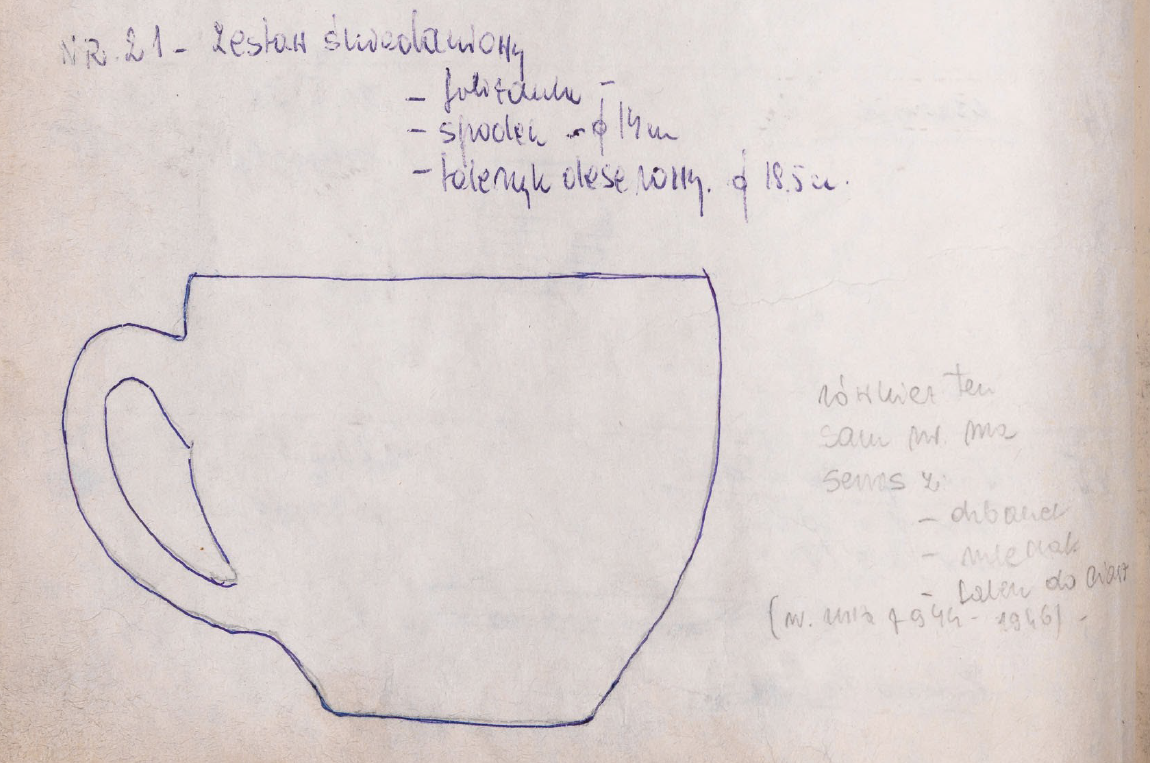 NR. 21 - Zestaw śniadaniowy
- filiżanka -
- spodek - ϕ 14 cm
- talerzyk deserowy. ϕ 18,5 cm.
również ten
sam nr. ma
serwis z:
- dzbanek
- mlecznik
- talerz do ciast
(nr. 1944 - 1946) -